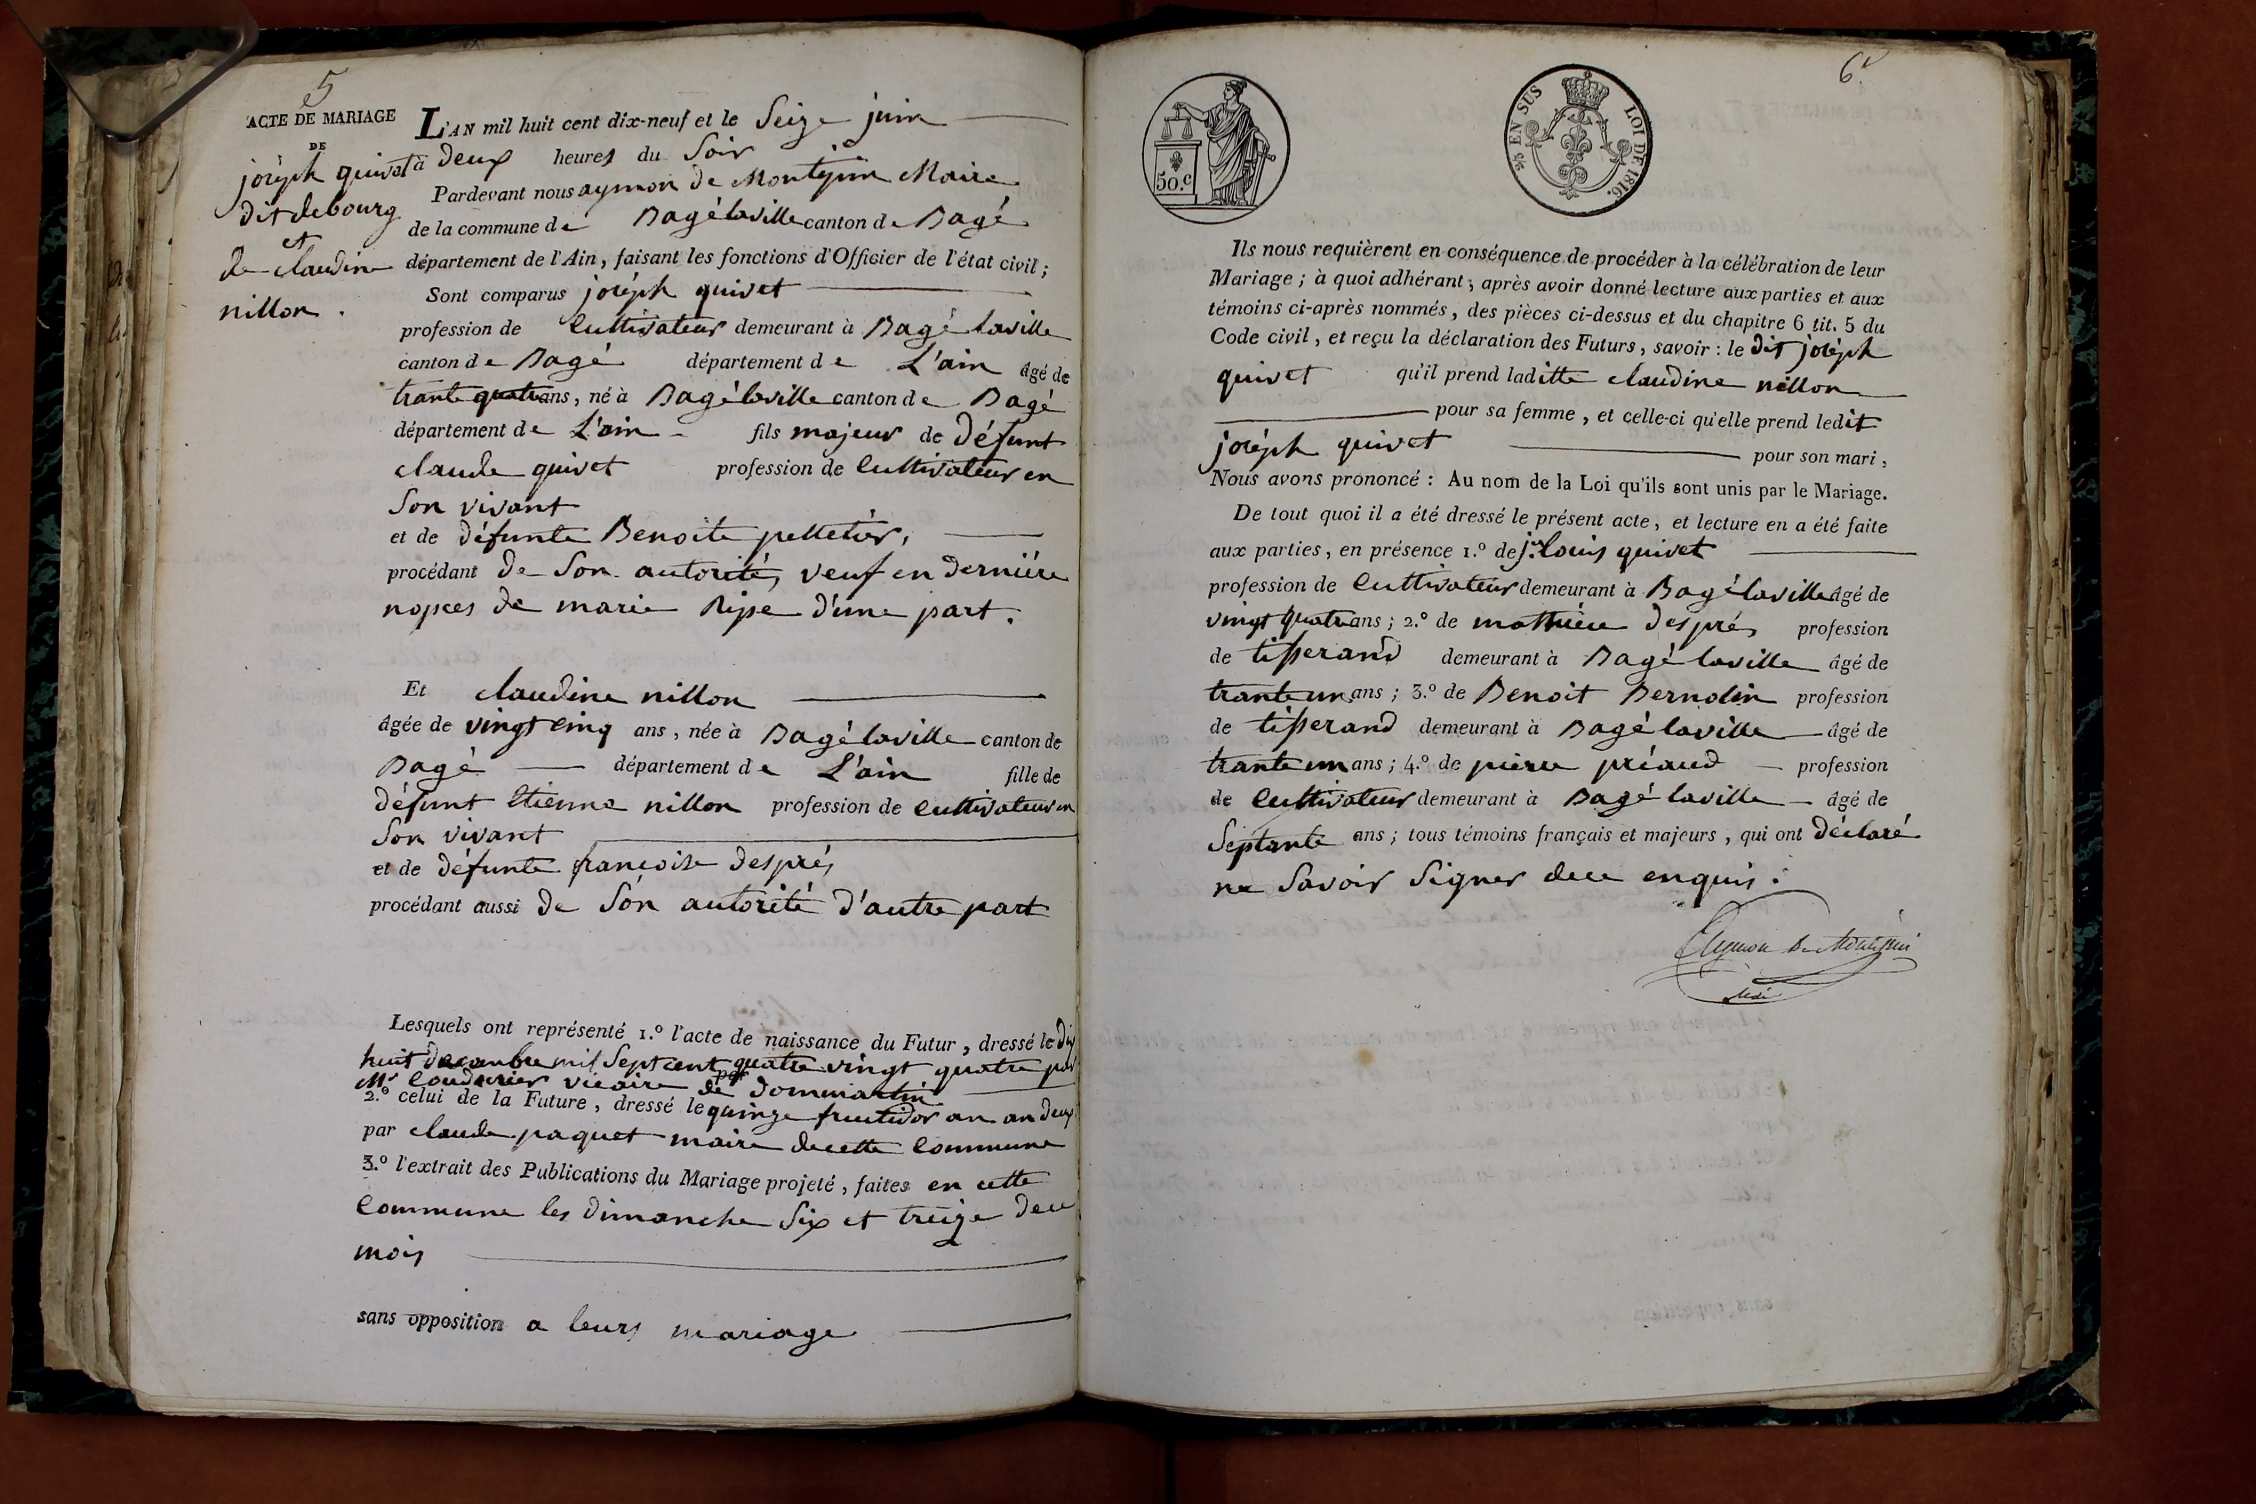 5
ACTE DE MARIAGE
DE
joséph quivet
dit debourg
et
de claudine
nillon.
L'AN mil huit cent dix-neuf et le Seize juin
à deux heures du Soir
Pardevant nous aymon de Montépin Maire
de la commune de Bagélaville canton de Bagé
département de l'Ain, faisant les fonctions d'Officier de l'état civil;
Sont comparus joséph quivet
profession de Cultivateur demeurant à Bagé laville
canton de Bagé département de L'ain âgé de
trante quatre ans, né à Bagélaville canton de Bagé
département de L'ain fils majeur de défunt
claude quivet profession de Cultivateur en
Son vivant
et de défunte Benoite pelletier,
procédant de Son autorité, veuf en derniére
nopces de marie Ripe d'une part.
Et claudine nillon
âgée de vingt cinq ans, née à Bagélaville canton de
Bagé département de L'ain fille de
défunt etienne nillon profession de Cultivateur en
Son vivant
et de défunte françoise després
procédant aussi de Son autorité d'autre part
Lesquels ont représenté 1.º l'acte de naissance du Futur, dressé le dix
huit decembre mil Sept cent quatre vingt quatre par
Mr Coudurier vicaire de dommartin
2.º celui de la Future, dressé le quinze fructidor an an deux
par claude paquet maire de cette Commune
3.º l'extrait des Publications du Mariage projeté, faites en cette
Commune les dimanche Six et treize de ce
mois
sans opposition a leurs mariage
6
50.c
EN SUS
LOI DE 1816.
Ils nous requièrent en conséquence de procéder à la célébration de leur
Mariage; à quoi adhérant, après avoir donné lecture aux parties et aux
témoins ci-après nommés, des pièces ci-dessus et du chapitre 6 tit. 5 du
Code civil, et reçu la déclaration des Futurs, savoir: le dit joséph
quivet qu'il prend laditte claudine nillon
pour sa femme, et celle-ci qu'elle prend ledit
joséph quivet pour son mari,
Nous avons prononcé: Au nom de la Loi qu'ils sont unis par le Mariage.
De tout quoi il a été dressé le présent acte, et lecture en a été faite
aux parties, en présence 1.º de louis quivet
profession de Cultivateur demeurant à Bagélaville âgé de
vingt quatre ans; 2.º de mathieu després profession
de tisserand demeurant à Bagé laville âgé de
trante un ans; 3.º de Benoit Bernolin profession
de tisserand demeurant à Bagé laville âgé de
trante un ans; 4.º de pierre préaud profession
de Cultivateur demeurant à Bagé laville âgé de
Septante ans; tous témoins français et majeurs, qui ont déclaré
ne Savoir Signer de ce enquis.
Aymon de Montépin